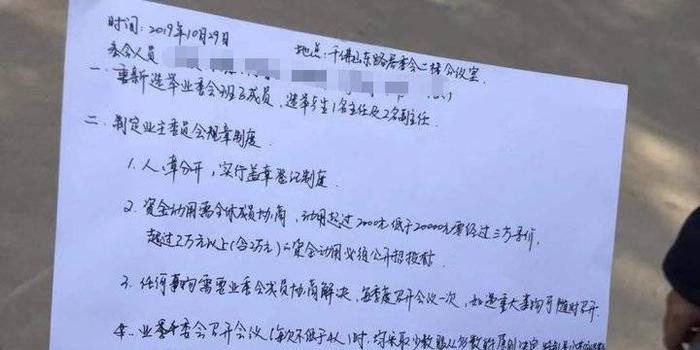 时间：2019年10月29日
地点：千佛山东路居委会二楼会议室
参会人员
一. 重新选举业委会班子成员，选举产生1名主任及2名副主任
二. 制定业主委员会规章制度
1. 人、章分开，实行盖章登记制度
2. 资金动用需全体成员协商，动用超过2000元低于20000元需经过三方寻价，
超过2万元以上(含2万元)的资金动用必须公开招投标
3. 任何事宜需要业委会成员协商解决，每季度召开会议一次，如遇重大事宜可随时召开
4. 业委会召开会议(每次不低于4人)时，均采取少数服从多数的原则决定